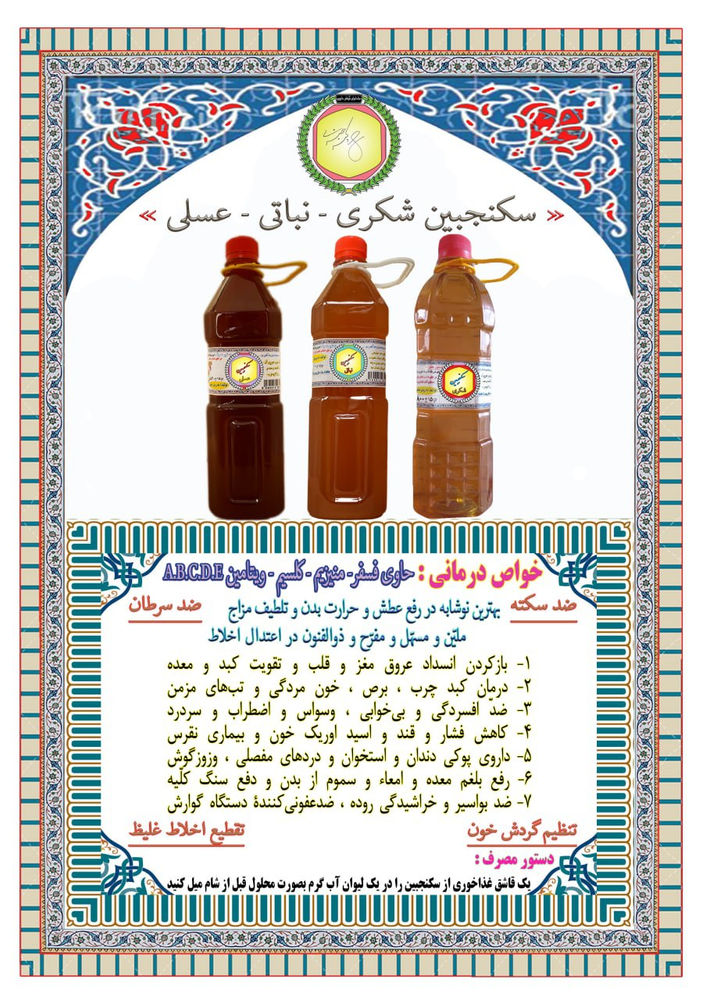 « سکنجبین شکری - نباتی - عسلی »
سکنجبین
عسلی
سکنجبین
نباتی
سکنجبین
شکری
خواص درمانی : حاوی فسفر- منیزیم - کلسیم - ویتامین A.B.C.D.E
ضد سکته بهترین نوشابه در رفع عطش و حرارت بدن و تلطیف مزاج ضد سرطان
ملیّن و مسهّل و مفرّح و ذوالفنون در اعتدال اخلاط
۱- بازکردن انسداد عروق مغز و قلب و تقویت کبد و معده
۲- درمان کبد چرب ، برص ، خون مردگی و تب‌های مزمن
۳- ضدّ افسردگی و بی‌خوابی ، وسواس و اضطراب و سردرد
۴- کاهش فشار و قند و اسید اوریک خون و بیماری نقرس
۵- داروی پوکی دندان و استخوان و دردهای مفصلی ، وزوزگوش
۶- رفع بلغم معده و امعاء و سموم از بدن و دفع سنگ کلیه
۷- ضد بواسیر و خراشیدگی روده ، ضدعفونی‌کنندهٔ دستگاه گوارش
تنظیم گردش خون تقطیع اخلاط غلیظ
دستور مصرف :
یک قاشق غذاخوری از سکنجبین را در یک لیوان آب گرم بصورت محلول قبل از شام میل کنید